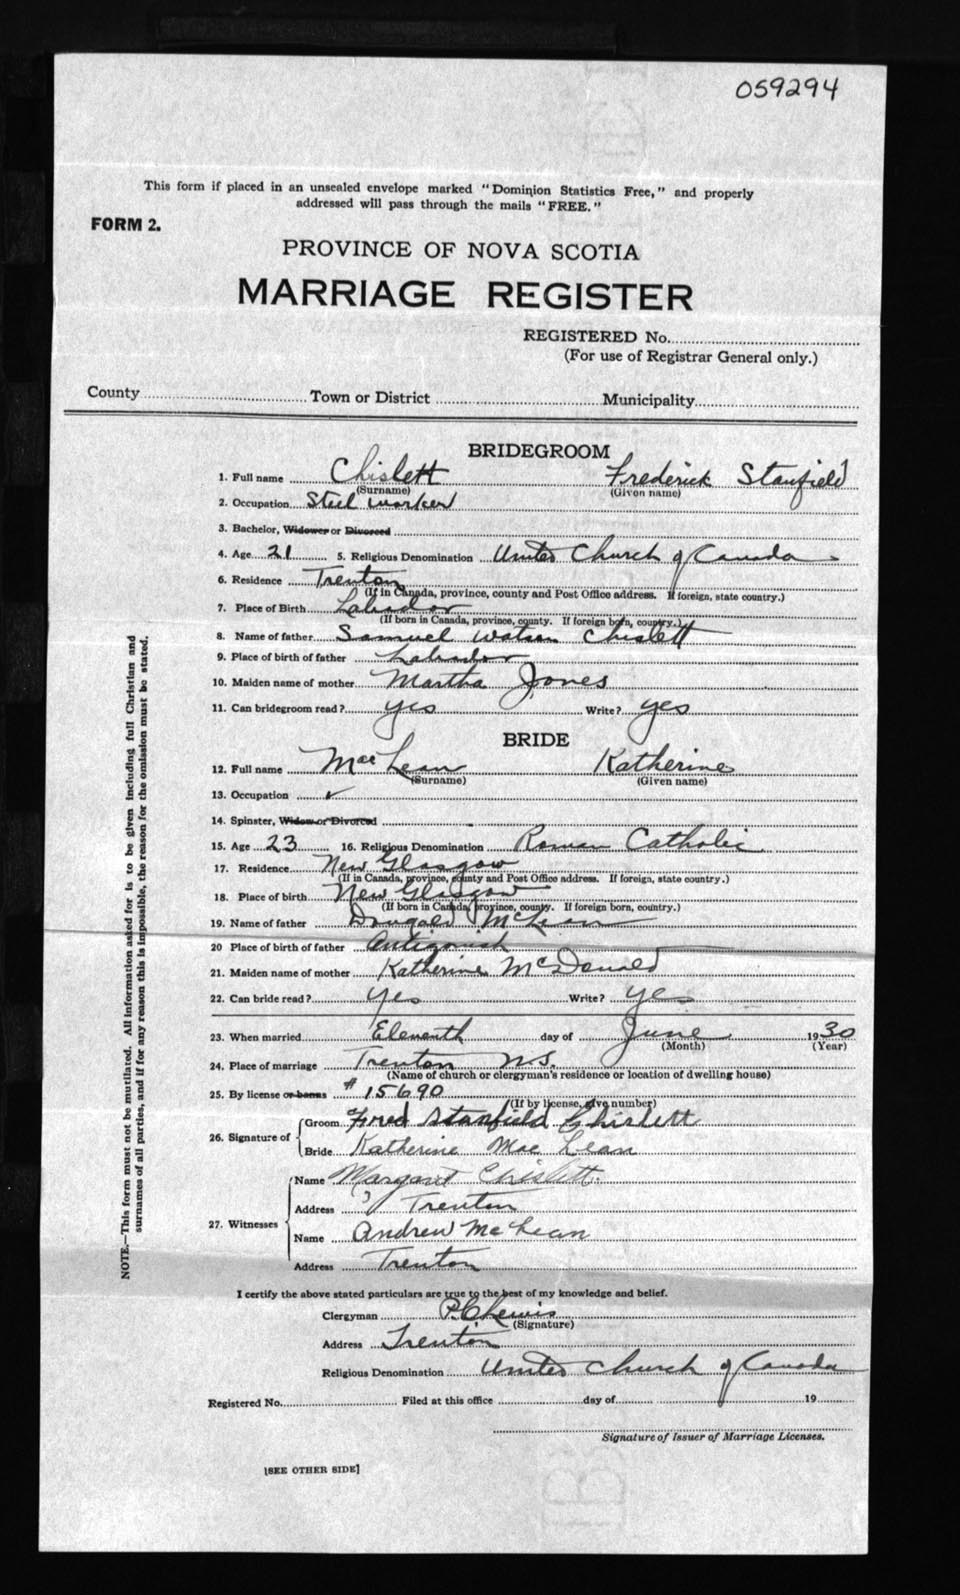 059294
This form if placed in an unsealed envelope marked "Dominion Statistics Free," and properly
addressed will pass through the mails "FREE."
FORM 2.
PROVINCE OF NOVA SCOTIA
MARRIAGE REGISTER
REGISTERED No.
(For use of Registrar General only.)
County Town or District Municipality
BRIDEGROOM
1. Full name Chislett Frederick Stanfield
(Surname) (Given name)
2. Occupation Steel worker
3. Bachelor, Widower or Divorced
4. Age 21 5. Religious Denomination United Church of Canada
6. Residence Trenton
(If in Canada, province, county and Post Office address. If foreign, state country.)
7. Place of Birth Labrador
(If born in Canada, province, county. If foreign born, country.)
8. Name of father Samuel Watson Chislett
9. Place of birth of father Labrador
10. Maiden name of mother Martha Jones
11. Can bridegroom read? yes Write? yes
BRIDE
12. Full name MacLean Katherine
(Surname) (Given name)
13. Occupation ✓
14. Spinster, Widow or Divorced
15. Age 23 16. Religious Denomination Roman Catholic
17. Residence New Glasgow
(If in Canada, province, county and Post Office address. If foreign, state country.)
18. Place of birth New Glasgow
(If born in Canada, province, county. If foreign born, country.)
19. Name of father Dougald McLean
20 Place of birth of father Antigonish
21. Maiden name of mother Katherine McDonald
22. Can bride read? yes Write? yes
23. When married Eleventh day of June 1930
(Month) (Year)
24. Place of marriage Trenton N.S.
(Name of church or clergyman's residence or location of dwelling house)
25. By license or banns # 15690
(If by license, give number)
26. Signature of Groom Fred Stanfield Chislett
Bride Katherine Mac Lean
27. Witnesses Name Margaret Chislett.
Address Trenton
Name Andrew MacLean
Address Trenton
I certify the above stated particulars are true to the best of my knowledge and belief.
Clergyman P.C. Lewis
(Signature)
Address Trenton
Religious Denomination United Church of Canada
Registered No. Filed at this office day of 19
Signature of Issuer of Marriage Licenses.
[SEE OTHER SIDE]
NOTE.—This form must not be mutilated. All information asked for is to be given including full Christian and
surnames of all parties, and if for any reason this is impossible, the reason for the omission must be stated.